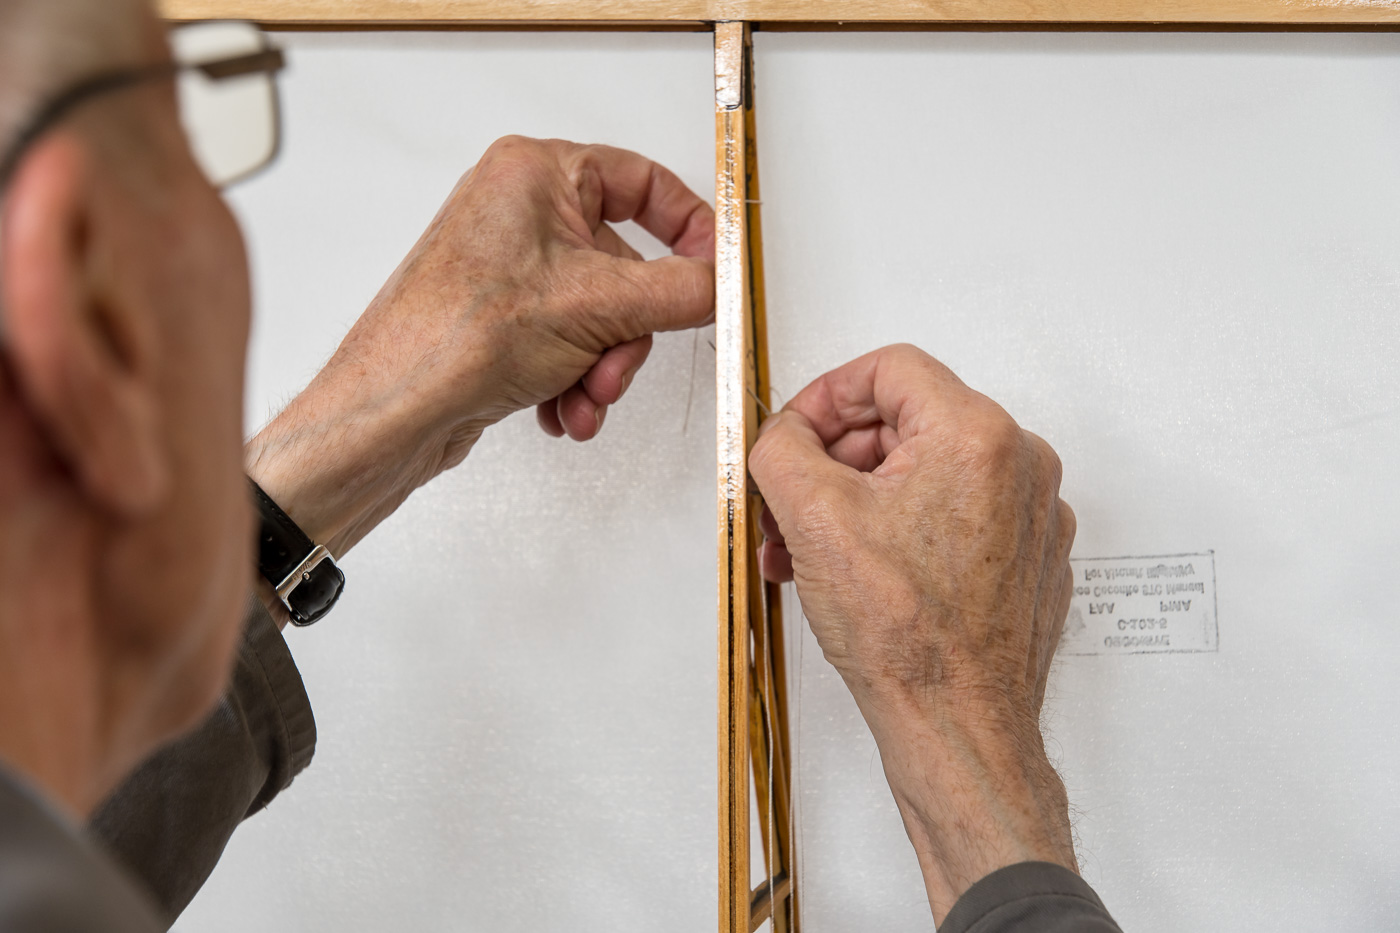 CECONITE
FAA PMA
Ceconite STC Manual
For Aircraft Eligibility